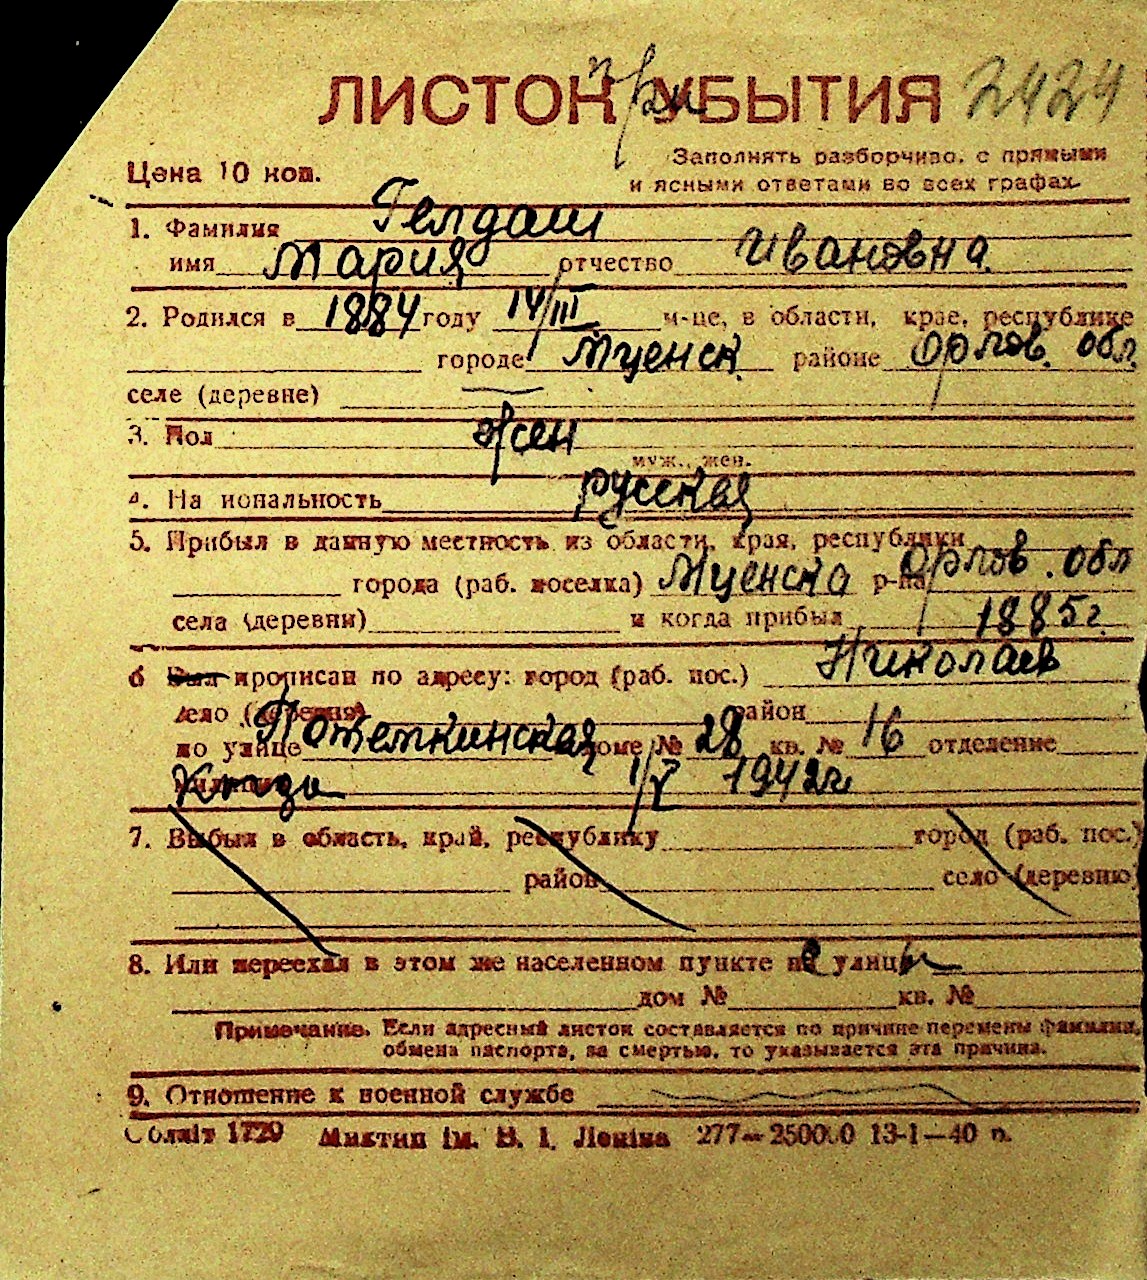 ЛИСТОК УБЫТИЯ при 2424
Цена 10 коп. Заполнять разборчиво, с прямыми
и ясными ответами во всех графах
1. Фамилия Гелдаш
имя Мария отчество Ивановна
2. Родился в 1884 году 14/III м-це, в области, крае, республике
городе Мценск районе Орлов. обл.
селе (деревне)
3. Пол жен
муж., жен.
4. На иональность русская
5. Прибыл в данную местность из области, края, республики
города (раб. поселка) Мценска р-на Орлов. обл
села (деревни) и когда прибыл 1885 г.
6 Был прописан по адресу: город (раб. пос.) Николаев
село (деревня) район
по улице Потемкинская доме № 28 кв. № 16 отделение
милиции Когда 1/V 1942 г.
7. Выбыл в область, край, республику город (раб. пос.)
район село (деревню)
8. Или переехал в этом же населенном пункте на улицу
дом № кв. №
Примечание. Если адресный листок составляется по причине перемены фамилии,
обмена паспорта, за смертью, то указывается эта причина.
9. Отношение к военной службе
Облліт 1729 Миктип ім. В. І. Леніна 277—250000 13-1—40 п.